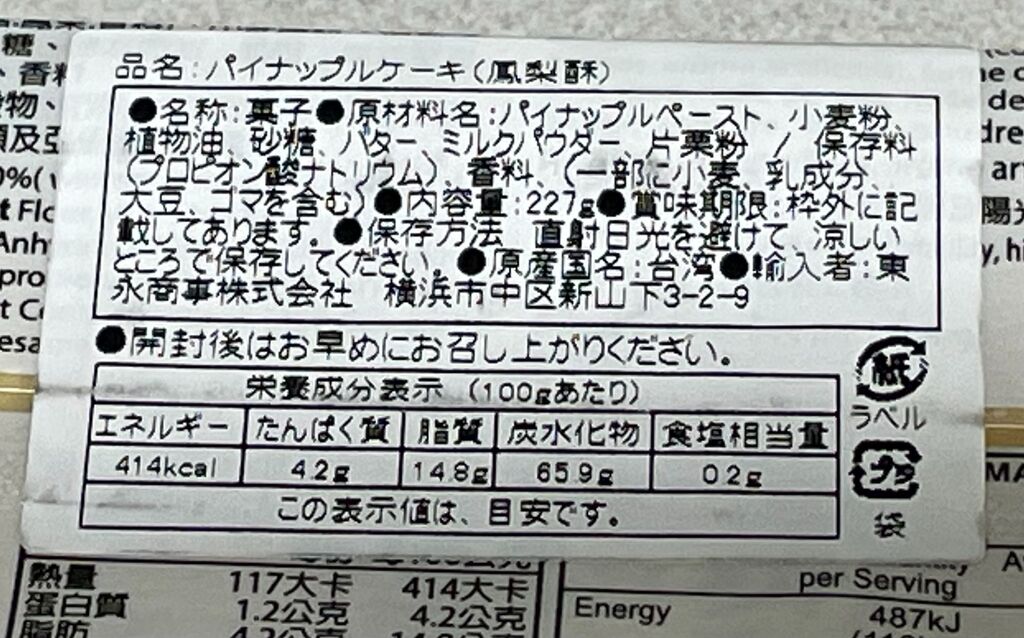 糖、
香料
物、
及
0%(
Flow
Anhy
pro
t Co
esa
品名:パイナップルケーキ(鳳梨酥)
●名称:菓子●原材料名:パイナップルペースト、小麦粉、
植物油、砂糖、バター、ミルクパウダー、片栗粉 / 保存料
(プロピオン酸ナトリウム)、香料、(一部に小麦、乳成分、
大豆、ゴマを含む)●内容量:227g●賞味期限:枠外に記
載してあります。●保存方法 直射日光を避けて、涼しい
ところで保存してください。●原産国名:台湾●輸入者:東
永商事株式会社 横浜市中区新山下3-2-9
●開封後はお早めにお召し上がりください。
栄養成分表示 (100gあたり)
エネルギー たんぱく質 脂質 炭水化物 食塩相当量
414kcal 4.2g 14.8g 65.9g 0.2g
この表示値は、目安です。
紙
ラベル
プラ
袋
de
dre
ar
陽光
y, hi
MA
熱量 117大卡 414大卡
蛋白質 1.2公克 4.2公克
脂肪
per Serving
Energy 487kJ